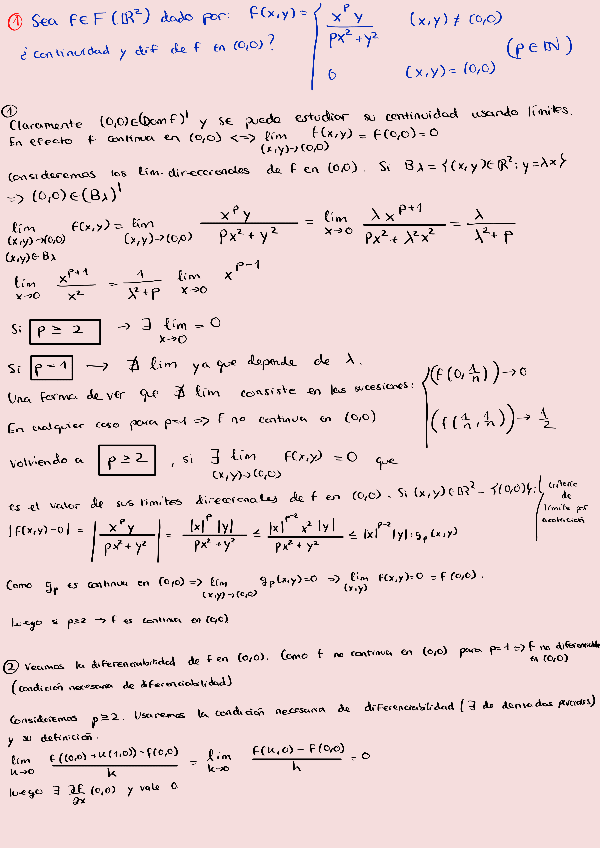 ① Sea f∈F(ℝ²) dado por: f(x,y) = { x^p y / (px²+y²) (x,y) ≠ (0,0)
0 (x,y) = (0,0) (p∈ℕ)
¿continuidad y dif de f en (0,0)?
①
Claramente (0,0)∈(Dom f)' y se puede estudiar su continuidad usando límites.
En efecto f continua en (0,0) <=> lím (x,y)→(0,0) f(x,y) = f(0,0) = 0
Consideremos los lím. direccionales de f en (0,0). Si Bλ = {(x,y)∈ℝ²: y=λx}
=> (0,0)∈(Bλ)'
lím (x,y)→(0,0) (x,y)∈Bλ f(x,y) = lím (x,y)→(0,0) x^p y / (px²+y²) = lím x→0 λx^(p+1) / (px²+λ²x²) = λ / (λ²+p)
lím x→0 x^(p+1) / x² = 1 / (λ²+p) lím x→0 x^(p-1)
Si p ≥ 2 → ∃ lím x→0 = 0
Si p=1 → ∄ lím ya que depende de λ.
Una forma de ver que ∄ lím consiste en las sucesiones: { (f(0,1/n)) → 0
(f(1/n,1/n)) → 1/2
En cualquier caso para p=1 => f no continua en (0,0)
Volviendo a p≥2, si ∃ lím (x,y)→(0,0) f(x,y) = 0 que
es el valor de sus límites direccionales de f en (0,0). Si (x,y)∈ℝ² - {(0,0)}: Criterio de límite por acotación
|f(x,y)-0| = | x^p y / (px²+y²) | = |x|^p |y| / (px²+y²) ≤ |x|^(p-2) x² |y| / (px²+y²) ≤ |x|^(p-2) |y| : g_p(x,y)
Como g_p es continua en (0,0) => lím (x,y)→(0,0) g_p(x,y)=0 => lím (x,y) f(x,y)=0 = f(0,0).
luego si p≥2 → f es continua en (0,0)
② Veamos la diferenciabilidad de f en (0,0). Como f no continua en (0,0) para p=1 => f no diferenciable en (0,0)
(condición necesaria de diferenciabilidad)
Consideremos p≥2. Usaremos la condición necesaria de diferenciabilidad (∃ de derivadas parciales)
y su definición.
lím h→0 f((0,0)+h(1,0))-f(0,0) / h = lím h→0 f(h,0) - f(0,0) / h = 0
luego ∃ ∂f/∂x (0,0) y vale 0